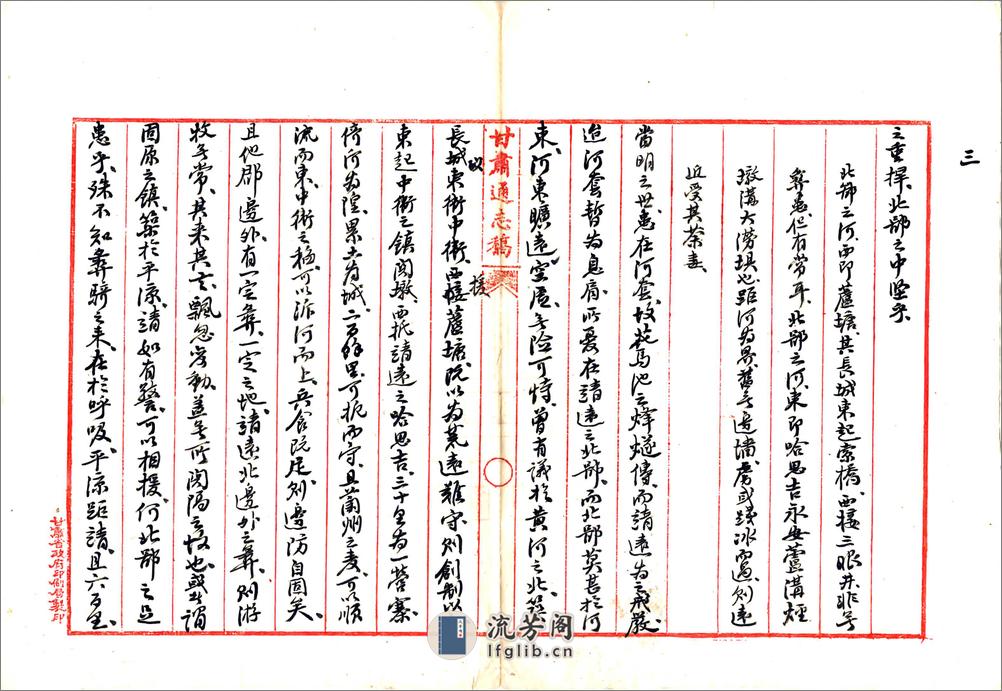 三
之重擇、北鄙之中堅乎、
北鄙之河西即蘆塘、其長城東起索橋、西接三眼井、非無
彝患、但有常耳、北鄙之河東即哈思吉、永安、蘆溝、煙
墩溝、大澇垻也、距河為界、舊無邊墻、虜或踐冰而過、則遠
近受其荼毒、
當明之世、患在河套、故花馬池之烽燧傳、而靖遠為之戒嚴、
迨河套暫為息肩、所憂在靖遠之北鄙、而北鄙莫甚於河
東、河東曠遠空虛、無險可恃、曾有議於黄河之北築
甘肅通志稿
長城、東衛中衛、西援蘆塘、既以為荒遠難守、則創制以
故
援
東起中衛之鎮關墩、西抵靖遠之哈思吉、三十里為一營寨、
倚河為隍、累土為城、二百餘里可扼而守、且蘭州之麥、可以順
流而東、中衛之稻、可以泝河而上、兵食既足、則邊防自固矣、
且他郡邊外、有一定彝、一定之地、靖遠北邊外之彝、則游
牧無常、其來其去、飄忽無動、蓋無所閡隔之故也、或者謂
固原之鎮、築於平涼、靖如有警、可以相援、何北鄙之足
患乎、殊不知彝騎之来、在於呼吸、平涼距靖且六百里、
甘肅省政府印刷局製印
流芳阁
lfglib.cn